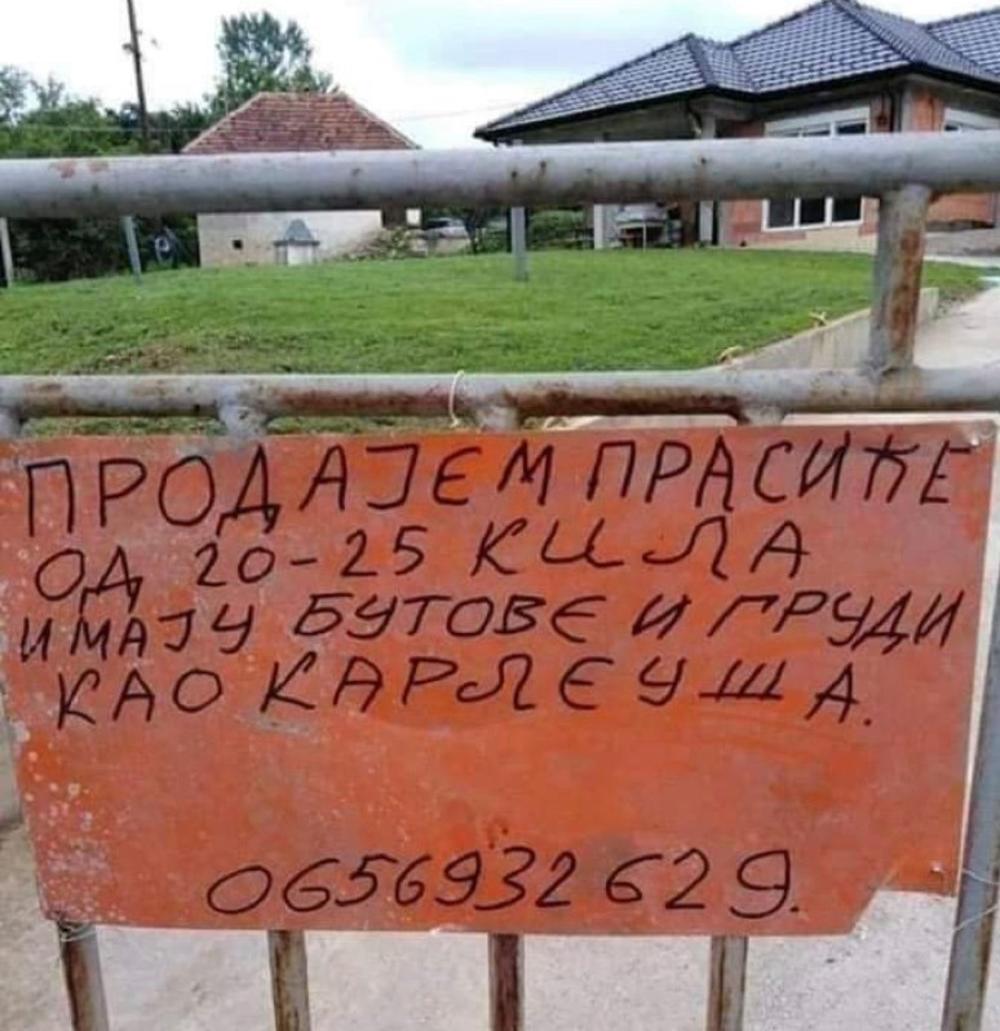 ПРОДАЈЕМ ПРАСИЋЕ
ОД 20-25 КИЛА
ИМАЈУ БУТОВЕ И ГРУДИ
КАО КАРЛЕУША.
0656932629.